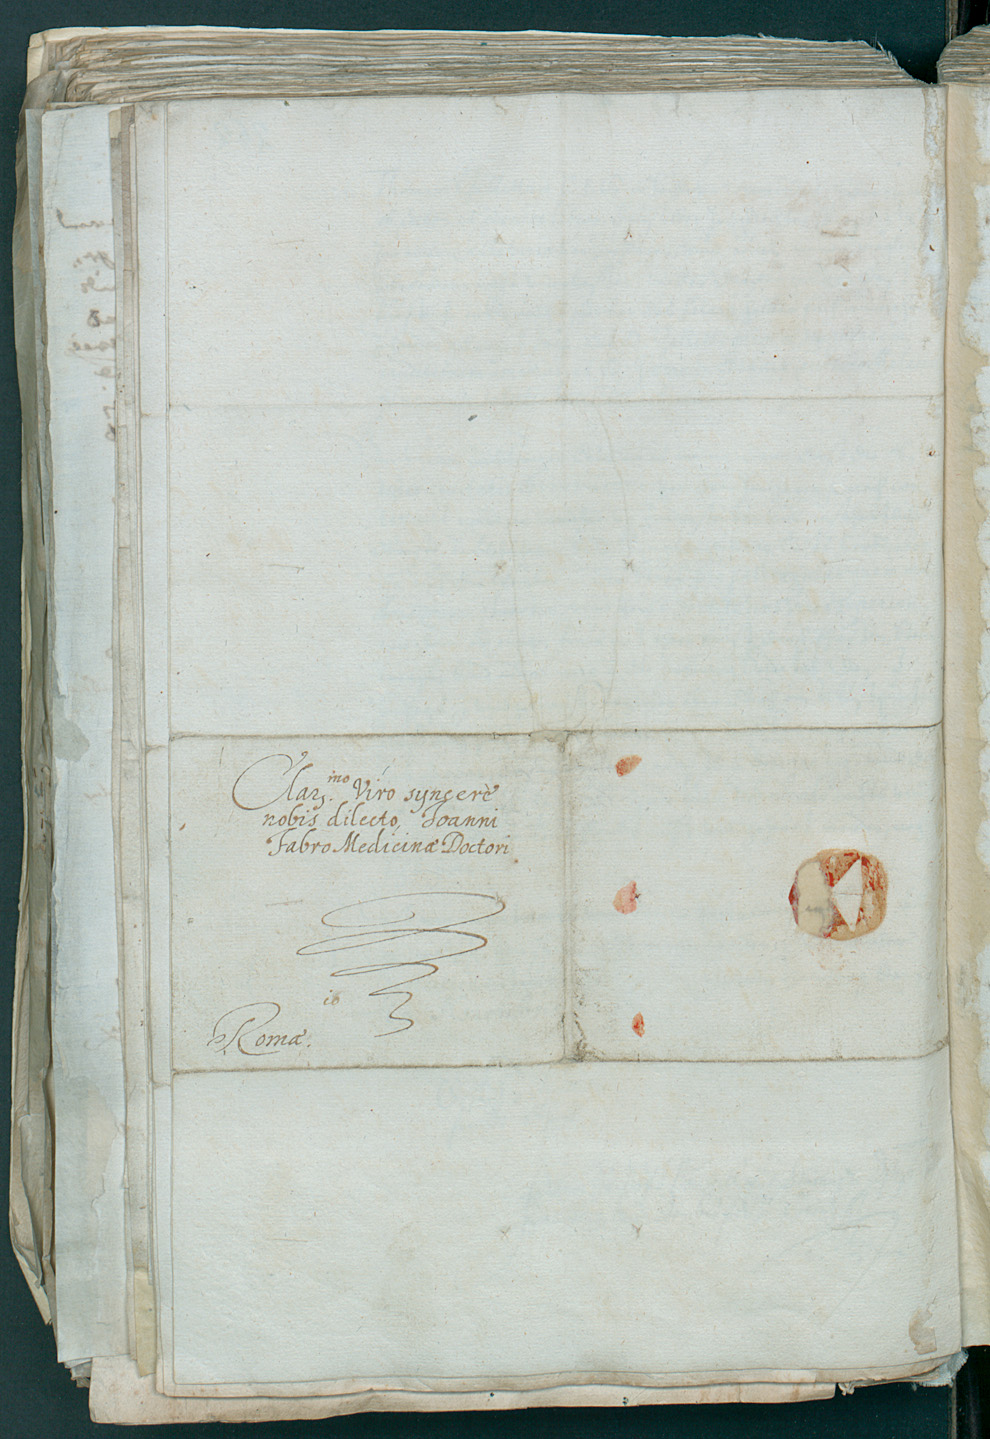 Clar.mo Viro syncerè
nobis dilecto, Joanni
Fabro Medicinæ Doctori
io
Romæ.